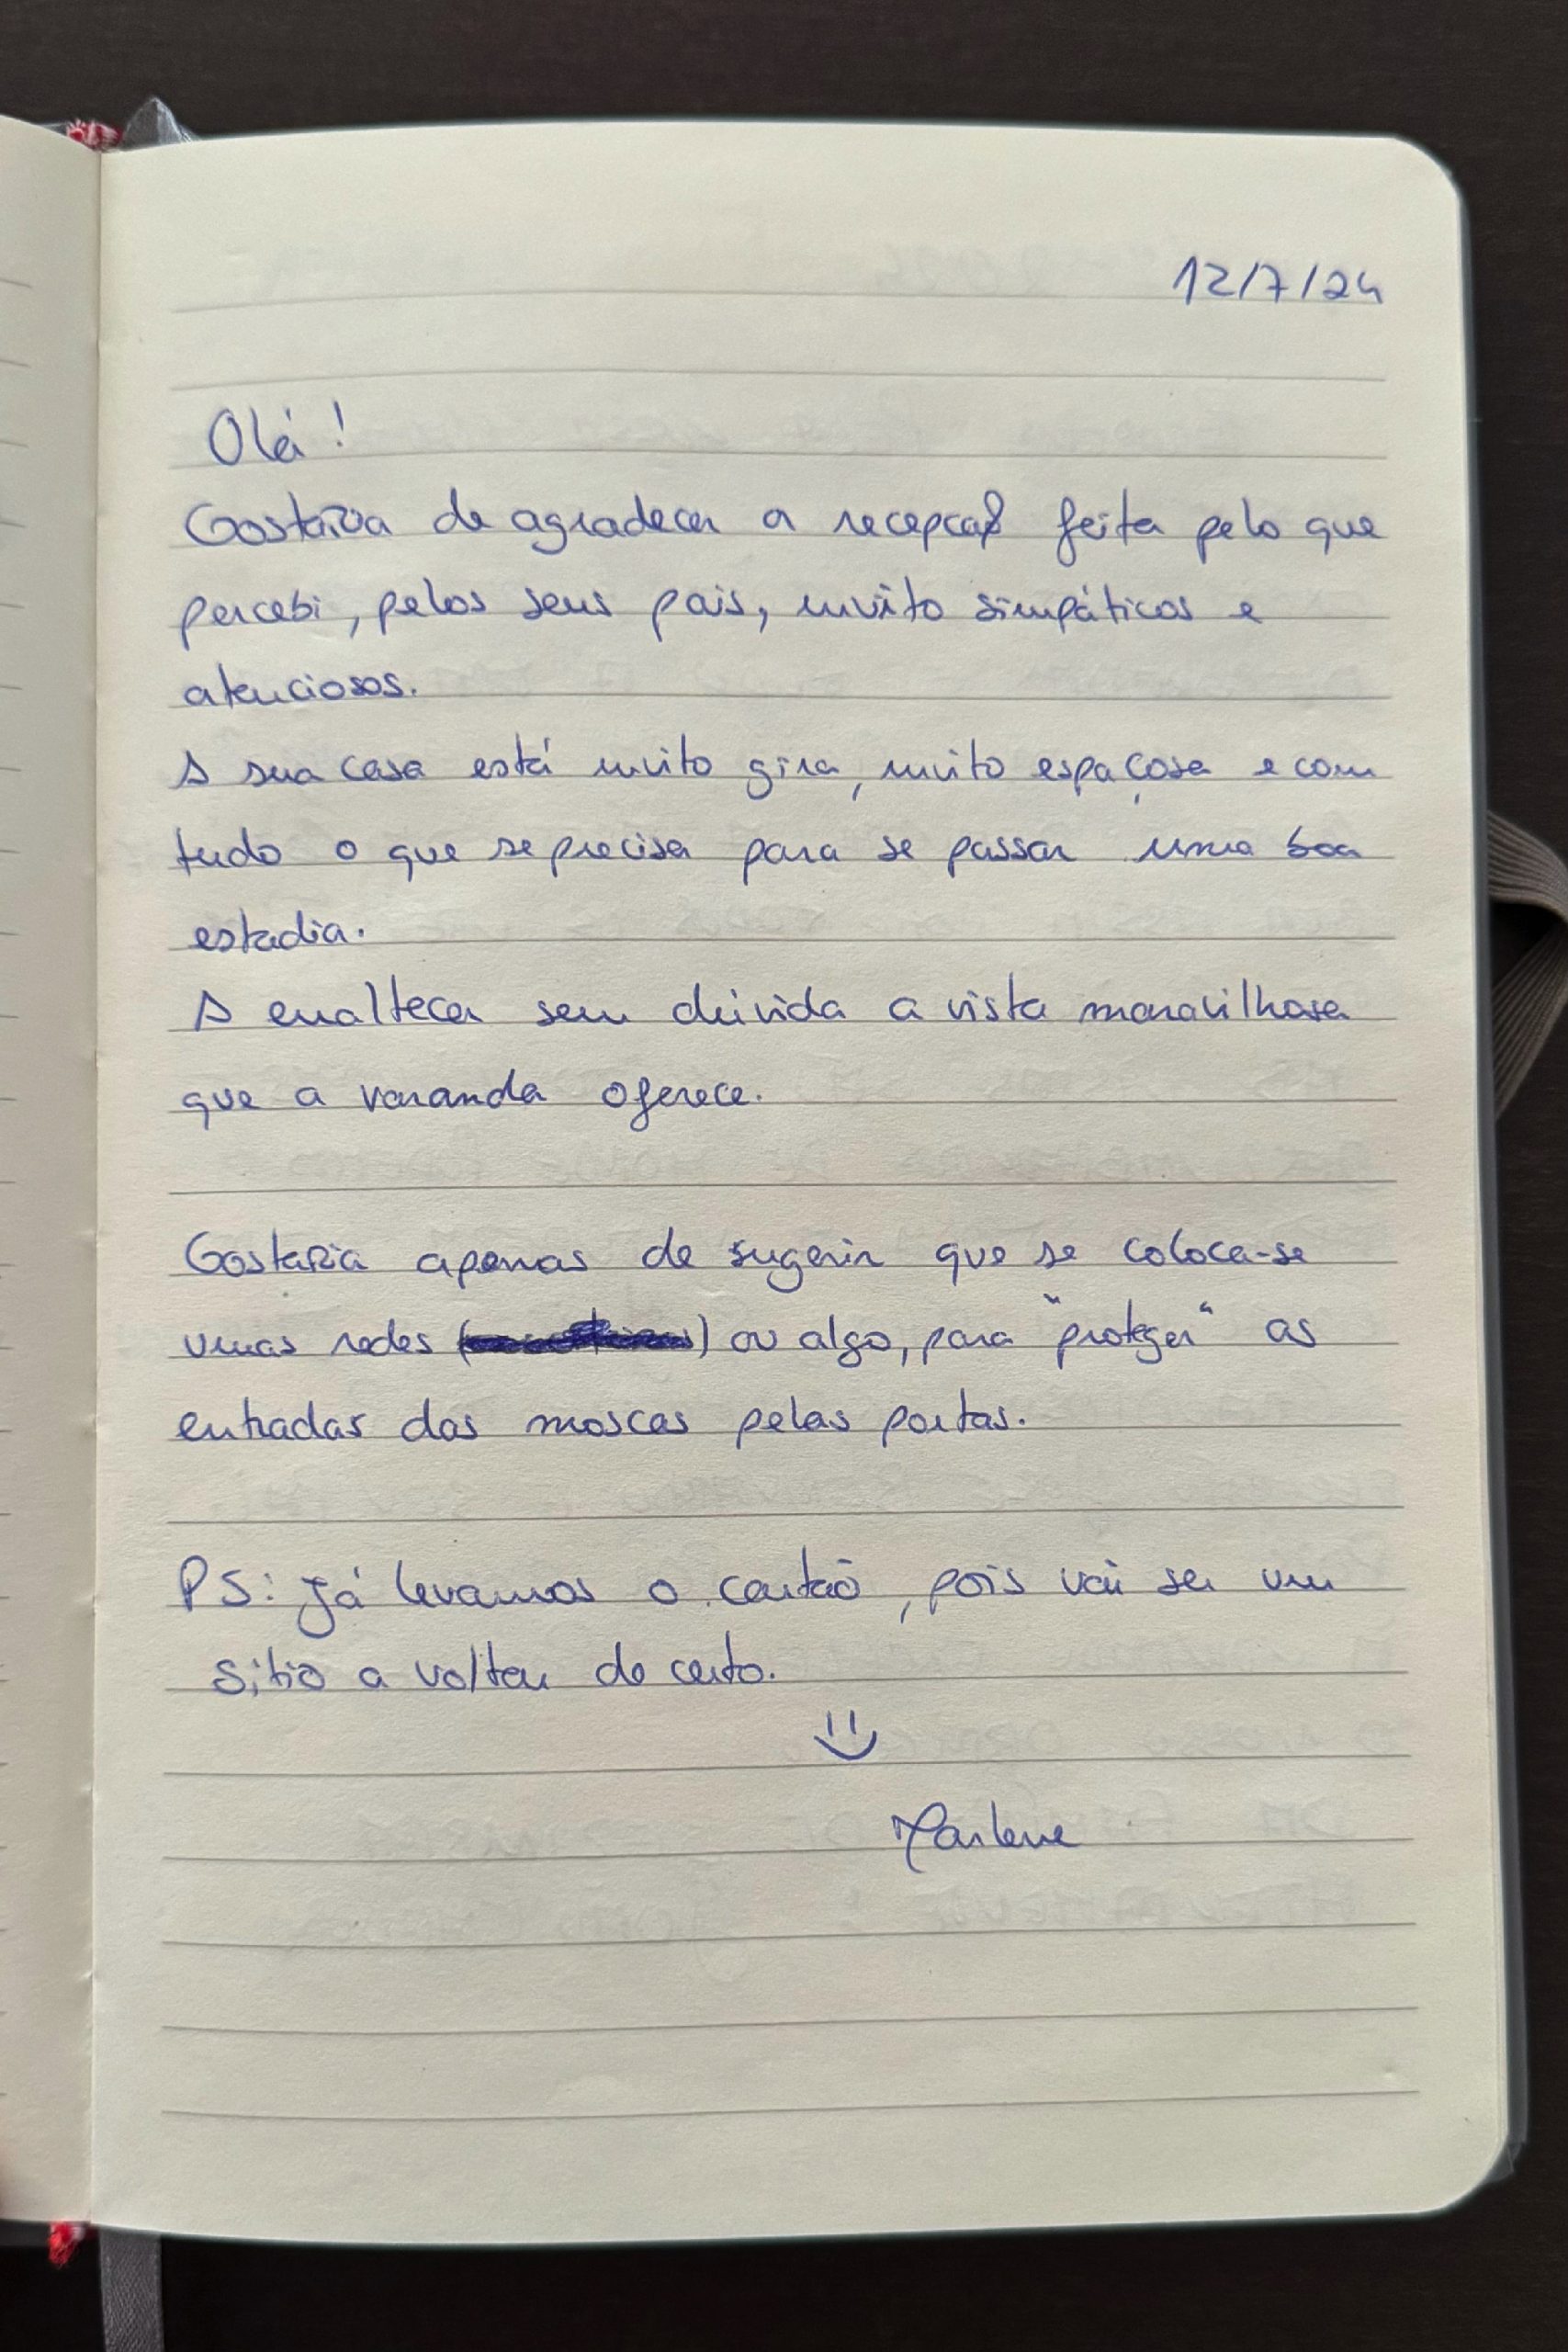 12/7/24
Olá!
Gostaria de agradecer a recepção feita pelo que
percebi, pelos seus pais, muito simpáticos e
atenciosos.
A sua casa está muito gira, muito espaçosa e com
tudo o que se precisa para se passar uma boa
estadia.
A enaltecer sem dúvida a vista maravilhosa
que a varanda oferece.
Gostaria apenas de sugerir que se coloca-se
umas redes () ou algo, para "proteger" as
entradas das moscas pelas portas.
PS: Já levamos o cartão, pois vai ser um
sitio a voltar de certo.
Marlene